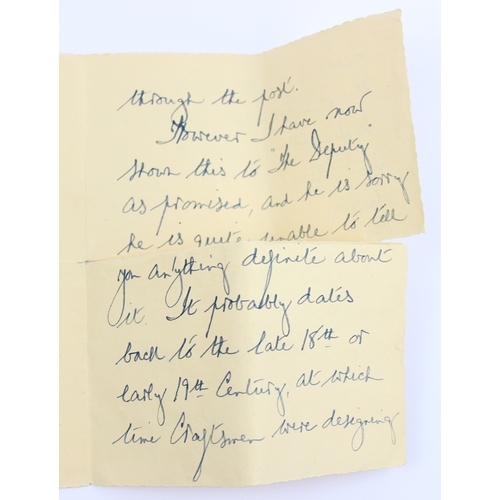 through the post.
However I have now
shown this to "The Deputy"
as promised, and he is sorry
he is quite unable to tell
you anything definite about
it. It probably dates
back to the late 18th or
early 19th Century, at which
time Craftsmen were designing